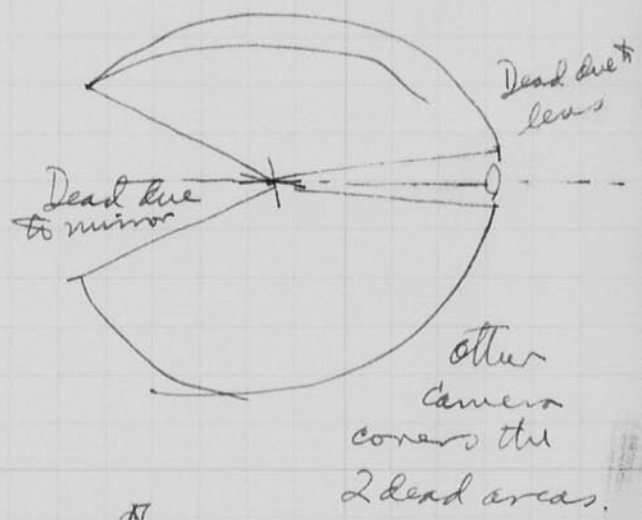 Dead due to
lens
Dead due
to mirror
other
camera
covers the
2 dead areas.